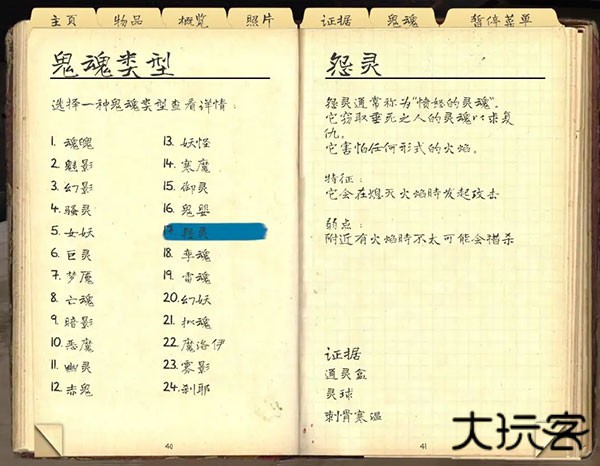 主页 物品 概览 照片 证据 鬼魂 暂停菜单
鬼魂类型
选择一种鬼魂类型查看详情：
1. 魂魄
2. 魅影
3. 幻影
4. 骚灵
5. 女妖
6. 巨灵
7. 梦魇
8. 亡魂
9. 暗影
10. 恶魔
11. 幽灵
12. 赤鬼
13. 妖怪
14. 寒魔
15. 御灵
16. 鬼婴
17. 怨灵
18. 孪魂
19. 雷魂
20. 幻妖
21. 拟魂
22. 魔洛伊
23. 雾影
24. 刹耶
40
怨灵
怨灵通常称为“愤怒的灵魂”。
它窃取垂死之人的灵魂以求复
仇。
它害怕任何形式的火焰。
特征：
它会在熄灭火焰時发起攻击
弱点：
附近有火焰時不太可能会猎杀
证据
通灵盒
灵球
刺骨寒温
41
大玩客